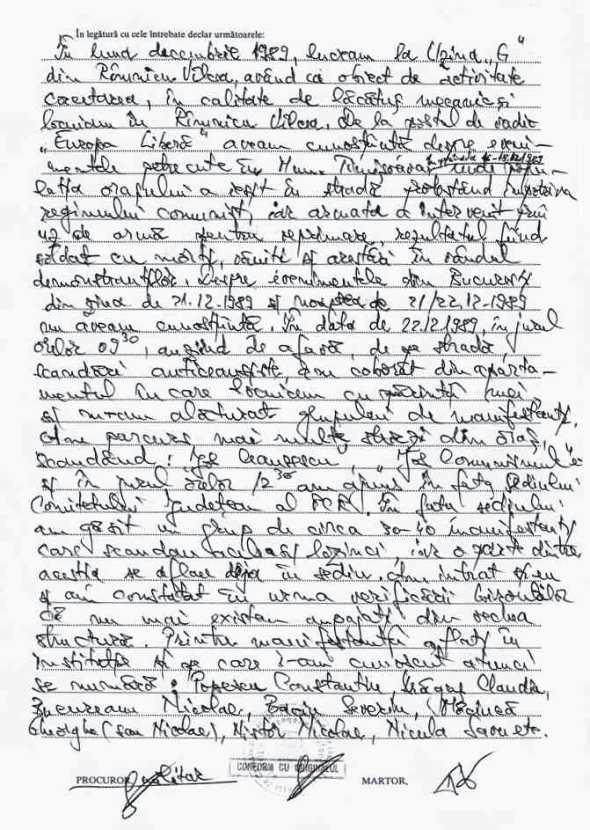 În legătură cu cele întrebate declar următoarele:
În luna decembrie 1989, lucram la Uzina „G"
din Râmnicu Vîlcea, având ca obiect de activitate
cercetarea, în calitate de lăcătuș mecanic și
locuiam în Rîmnicu Vîlcea. De la postul de radio
„Europa Liberă" aveam cunoștință despre eveni-
mentele petrecute în Mun. Timișoara, în perioada 16-18.12.1989 unde popu-
lația orașului a ieșit în stradă protestând împotriva
regimului comunist, iar armata a intervenit prin
uz de armă pentru reprimare, rezultatul fiind
soldat cu morți, răniți și arestări în rândul
demonstranților. Despre evenimentele din București
din ziua de 21.12.1989 și noaptea de 21/22.12.1989
nu aveam cunoștință. În data de 22.12.1989, în jurul
orelor 09³⁰, auzind de afară, de pe stradă
scandări anticeaușiste am coborât din aparta-
mentul în care locuiam cu părinții mei
și m-am alăturat grupului de manifestanți.
Am parcurs mai multe străzi din oraș,
scandând: „Jos Ceaușescu", „Jos Comunismul"
și în jurul orelor 12³⁰ am ajuns în fața sediului
Comitetului Județean al PCR. În fața sediului
am găsit un grup de circa 30-40 manifestanți
care scandau aceleași lozinci, iar o parte dintre
aceștia se aflau deja în sediu. Am intrat și eu
și am constatat în urma verificării birourilor
că nu mai existau angajați din vechea
structură. Printre manifestanții aflați în
instituție și pe care i-am cunoscut atunci
se numără: Popescu Constantin, Claudia,
Bucureanu Nicolae, Severin,
Gheorghe (sau Nicolae), Nistor Nicolae, Nicula
PROCUROR militar
CONFORM CU ORIGINALUL
MARTOR,